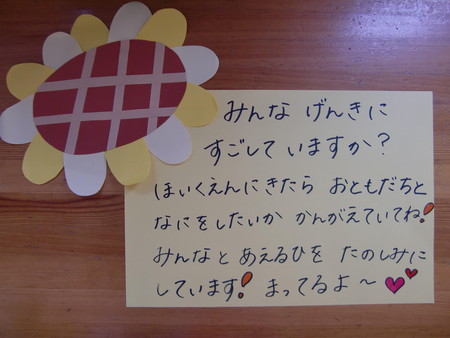 みんな げんきに
すごして いますか？
ほいくえんにきたら おともだちと
なにをしたいか かんがえていてね！
みんなと あえるひを たのしみに
しています！ まってるよ～